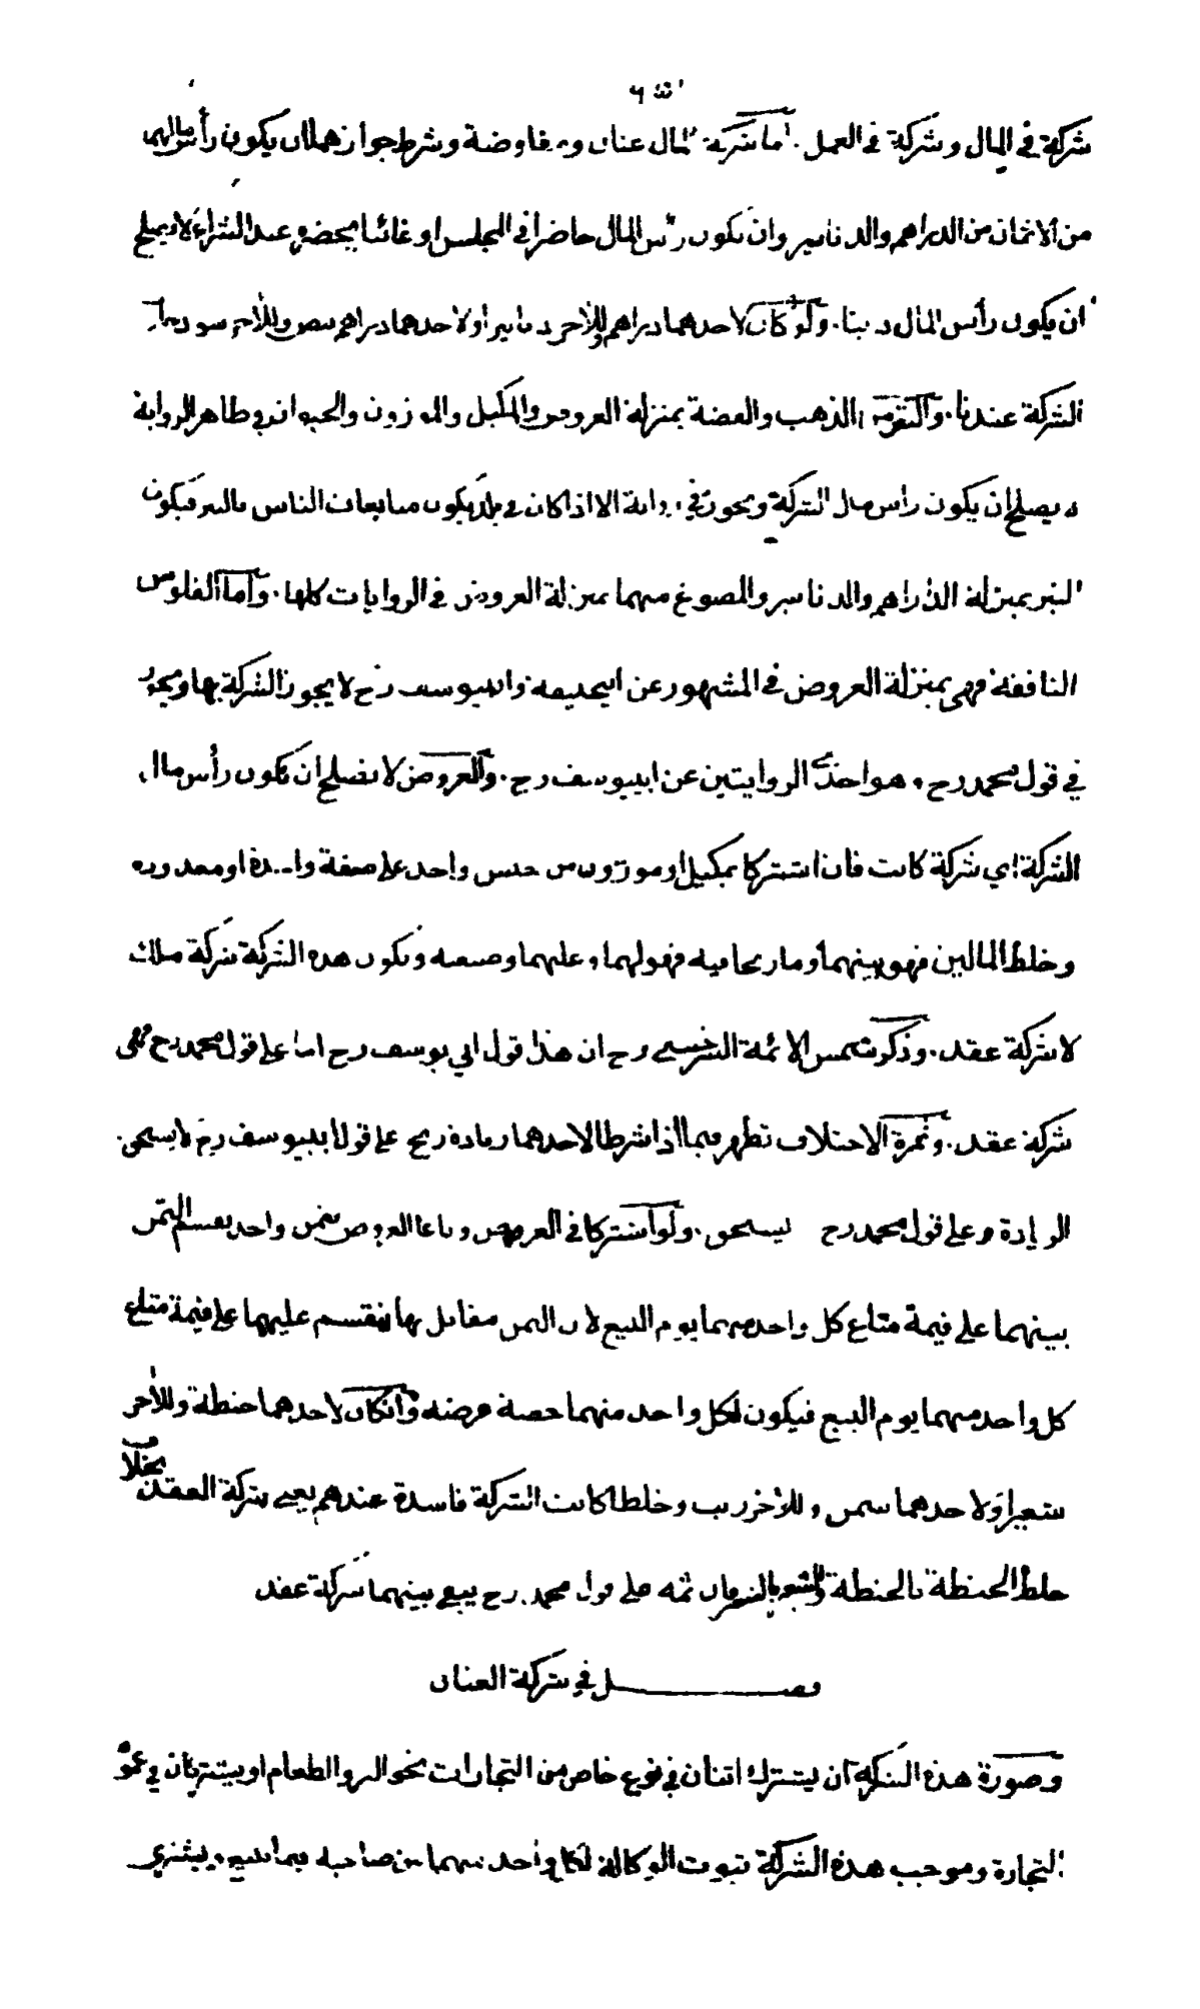 شركة في المال وشركة في العمل. اما شركة المال عنان ومفاوضة وشرط جوازهما ان يكون رأس مالهما
من الاثمان من الدراهم والدنانير وان يكون رأس المال حاضرا في المجلس او غائبا يحضره عند الشراء لا يصلح
ان يكون رأس المال دينا. ولو كان لاحدهما دراهم وللآخر دنانير او لاحدهما دراهم بيض وللآخر سود جازت
الشركة عندنا. والذهب والفضة بمنزلة العروض والمكيل والموزون والحيوان في ظاهر الرواية
لا يصلح ان يكون رأس مال الشركة ويجوز في رواية الا اذا كان في بلد يكون مبايعات الناس بالتبر فيكون
التبر بمنزلة الدراهم والدنانير والمصوغ منهما بمنزلة العروض في الروايات كلها. واما الفلوس
النافقة فهي بمنزلة العروض في المشهور عن ابيحنيفة وابييوسف رح لا يجوز الشركة بها ويجوز
في قول محمد رح وهو احدى الروايتين عن ابييوسف رح. والعروض لا تصلح ان تكون رأس مال
الشركة اي شركة كانت فان اشتركا بمكيل او موزون من جنس واحد على صفة واحدة او معدود
وخلط المالين فهو بينهما وما ربحا فيه فهو لهما وعليهما وضيعته وتكون هذه الشركة شركة ملك
لا شركة عقد. وذكر شمس الائمة السرخسي رح ان هذا قول ابي يوسف رح اما على قول محمد رح فهي
شركة عقد. وثمرة الاختلاف تظهر فيما اذا شرطا لاحدهما زيادة ربح على قول ابييوسف رح لا يستحق
الزيادة وعلى قول محمد رح يستحق. ولو اشتركا في العروض وباعا العروض بثمن واحد يقسم الثمن
بينهما على قيمة متاع كل واحد منهما يوم البيع لان الثمن مقابل بها فيقسم عليهما على قيمة متاع
كل واحد منهما يوم البيع فيكون لكل واحد منهما حصة عرضه وان كان لاحدهما حنطة وللآخر
شعير او لاحدهما سمن وللآخر زيت وخلطا كانت الشركة فاسدة عندهم يعني شركة العقد بخلاف
خلط الحنطة بالحنطة والشعير بالشعير فان ثمه على قول محمد رح يبقى بينهما شركة عقد
فصل في شركة العنان
وصورة هذه الشركة ان يشترك اثنان في نوع خاص من التجارات نحو البر والطعام او يشتركان في عموم
التجارة وموجب هذه الشركة ثبوت الوكالة لكل واحد منهما من صاحبه فيما يبيع ويشتري